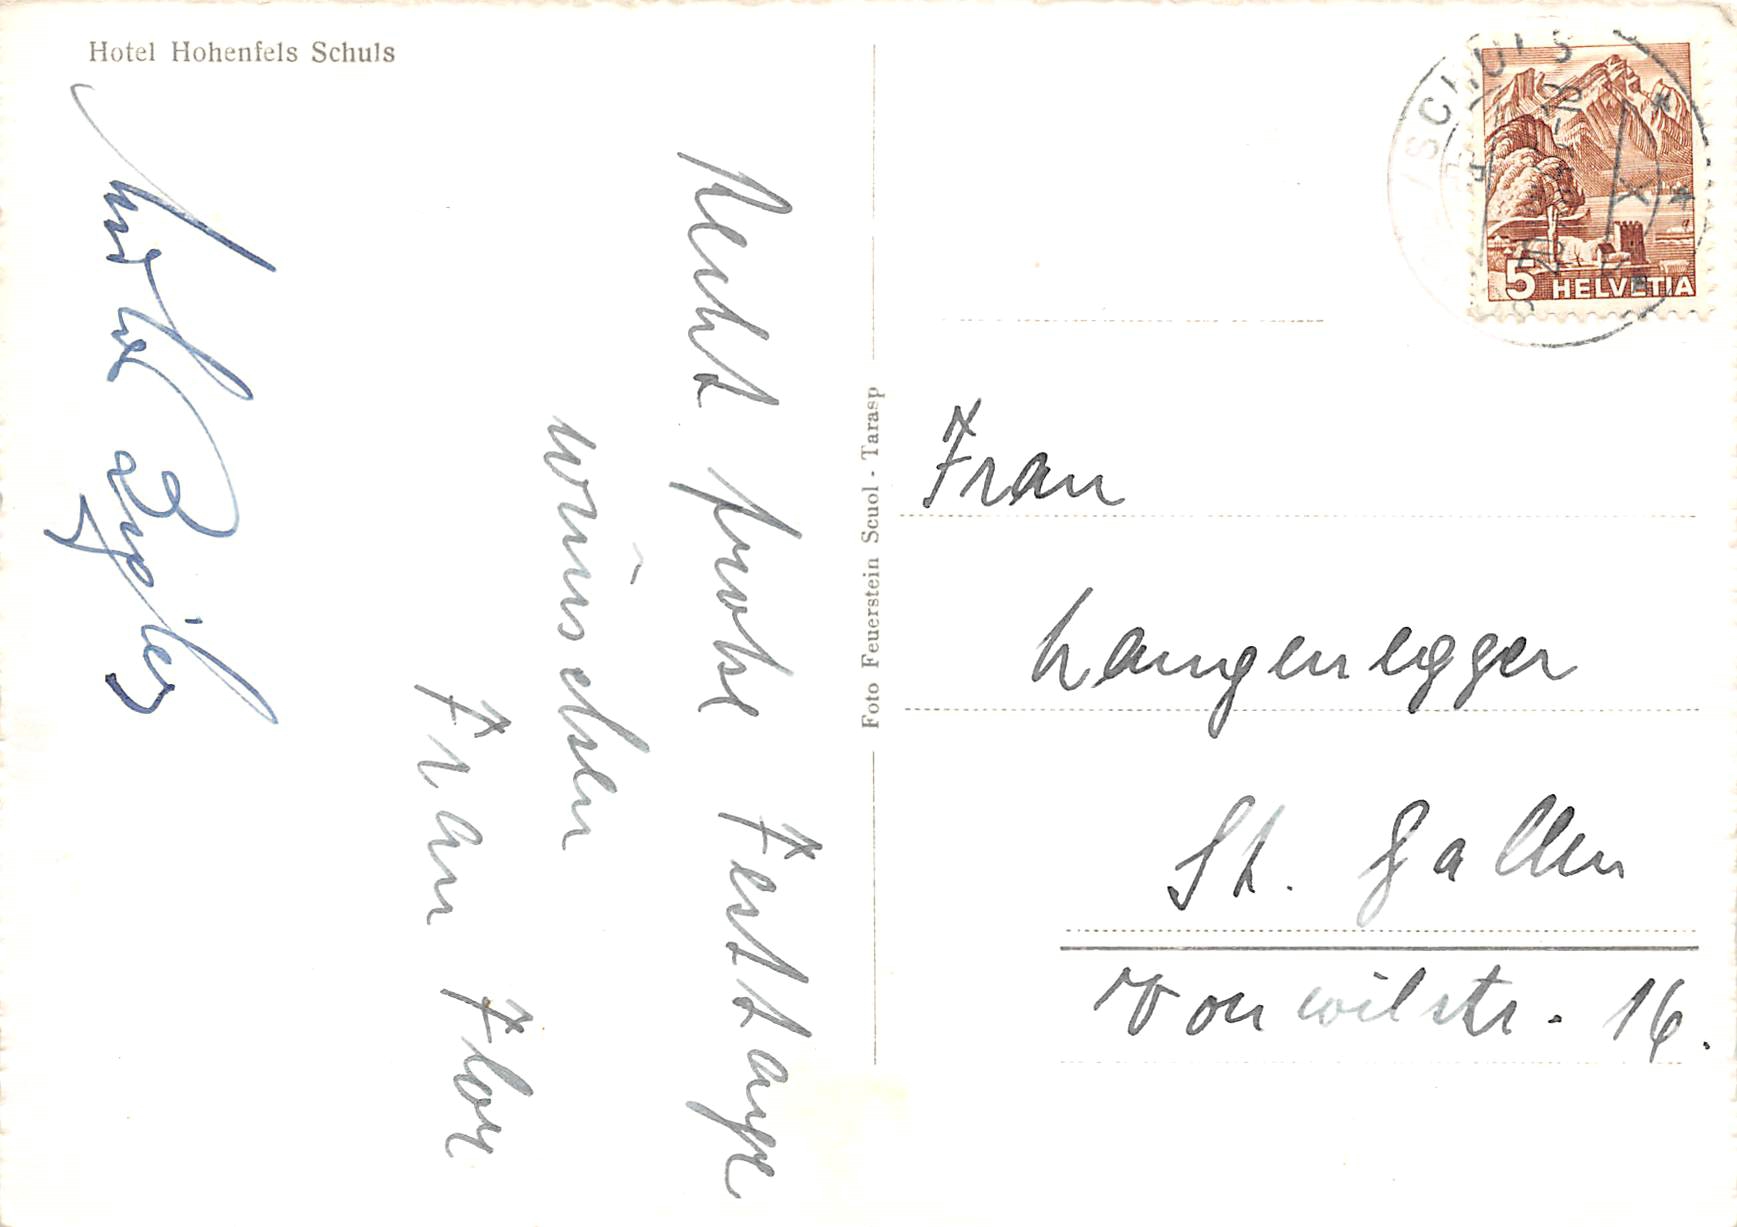 Hotel Hohenfels Schuls
Recht frohe Festtage
wünschen
Frau Flor
Foto Feuerstein Scuol - Tarasp
SCHULS
5 HELVETIA
Frau
Langenegger
St. Gallen
Vonwilstr. 16.